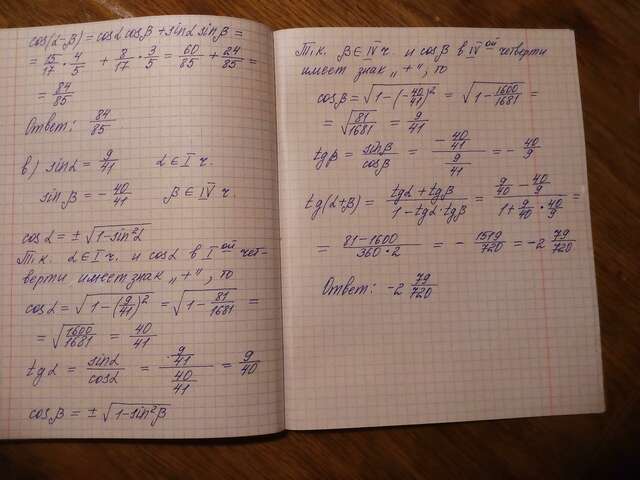 cos(α-β) = cosα cosβ + sinα sinβ =
= 15/17 · 4/5 + 8/17 · 3/5 = 60/85 + 24/85 =
= 84/85
Ответ: 84/85
в) sinα = 9/41 α ∈ I ч.
sinβ = - 40/41 β ∈ IV ч.
cosα = ± √(1-sin²α)
Т.к. α ∈ I ч. и cosα в I ой чет-
верти имеет знак „+", то
cosα = √(1-(9/41)²) = √(1 - 81/1681) =
= √(1600/1681) = 40/41
tgα = sinα/cosα = (9/41)/(40/41) = 9/40
cosβ = ± √(1-sin²β)
Т.к. β ∈ IV ч. и cosβ в IV ой четверти
имеет знак „+", то
cosβ = √(1-(-40/41)²) = √(1- 1600/1681) =
= √(81/1681) = 9/41
tgβ = sinβ/cosβ = (-40/41)/(9/41) = - 40/9
tg(α+β) = (tgα + tgβ)/(1 - tgα·tgβ) = (9/40 - 40/9)/(1 + 9/40 · 40/9) =
= (81-1600)/(360·2) = - 1519/720 = -2 79/720
Ответ: -2 79/720